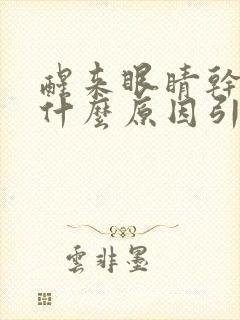 醒来眼睛幹
什麼原因引
雲非墨